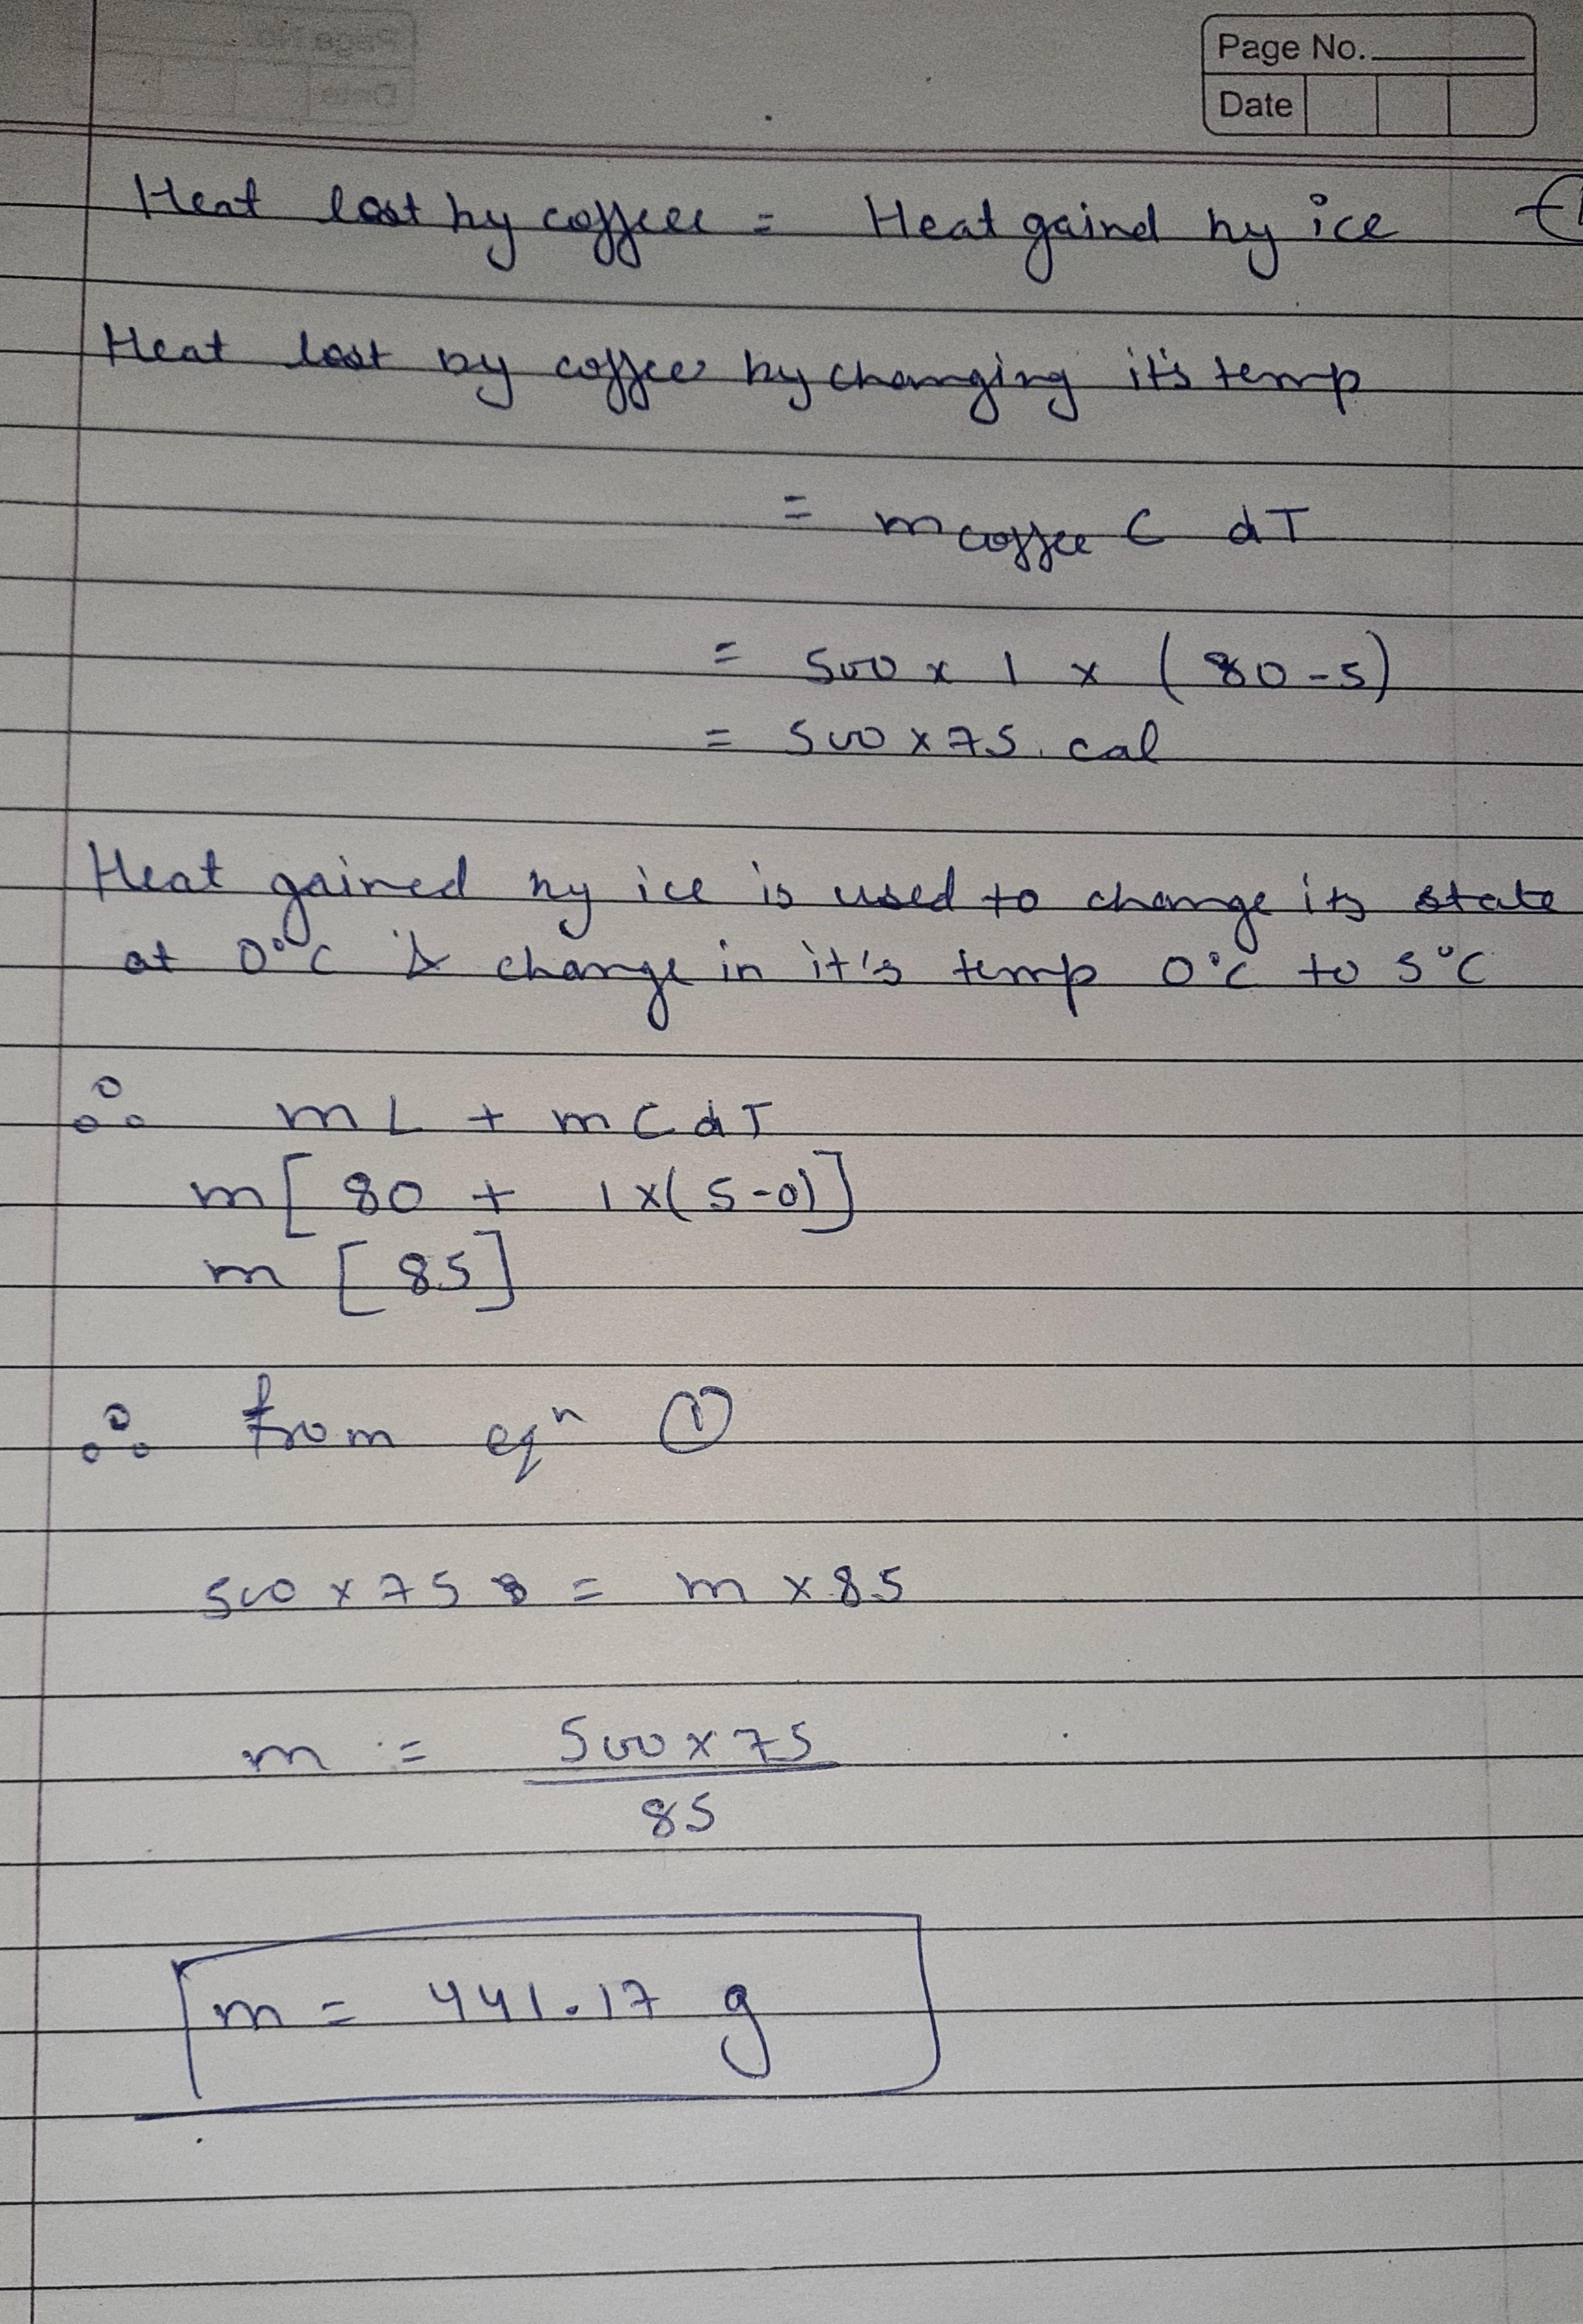 Page No.
Date
Heat lost by coffeee = Heat gaind by ice
Heat lost by coffee by changing it's temp
= m coffee C dT
= 500 x 1 x (80-5)
= 500 x 75 cal
Heat gained by ice is used to change its state
at 0°C & change in it's temp 0°C to 5°C
∴ mL + mCdT
m[80 + 1x(5-0)]
m [85]
∴ from eqⁿ ①
500 x 75 = m x 85
m = 500 x 75
85
m = 441.17 g